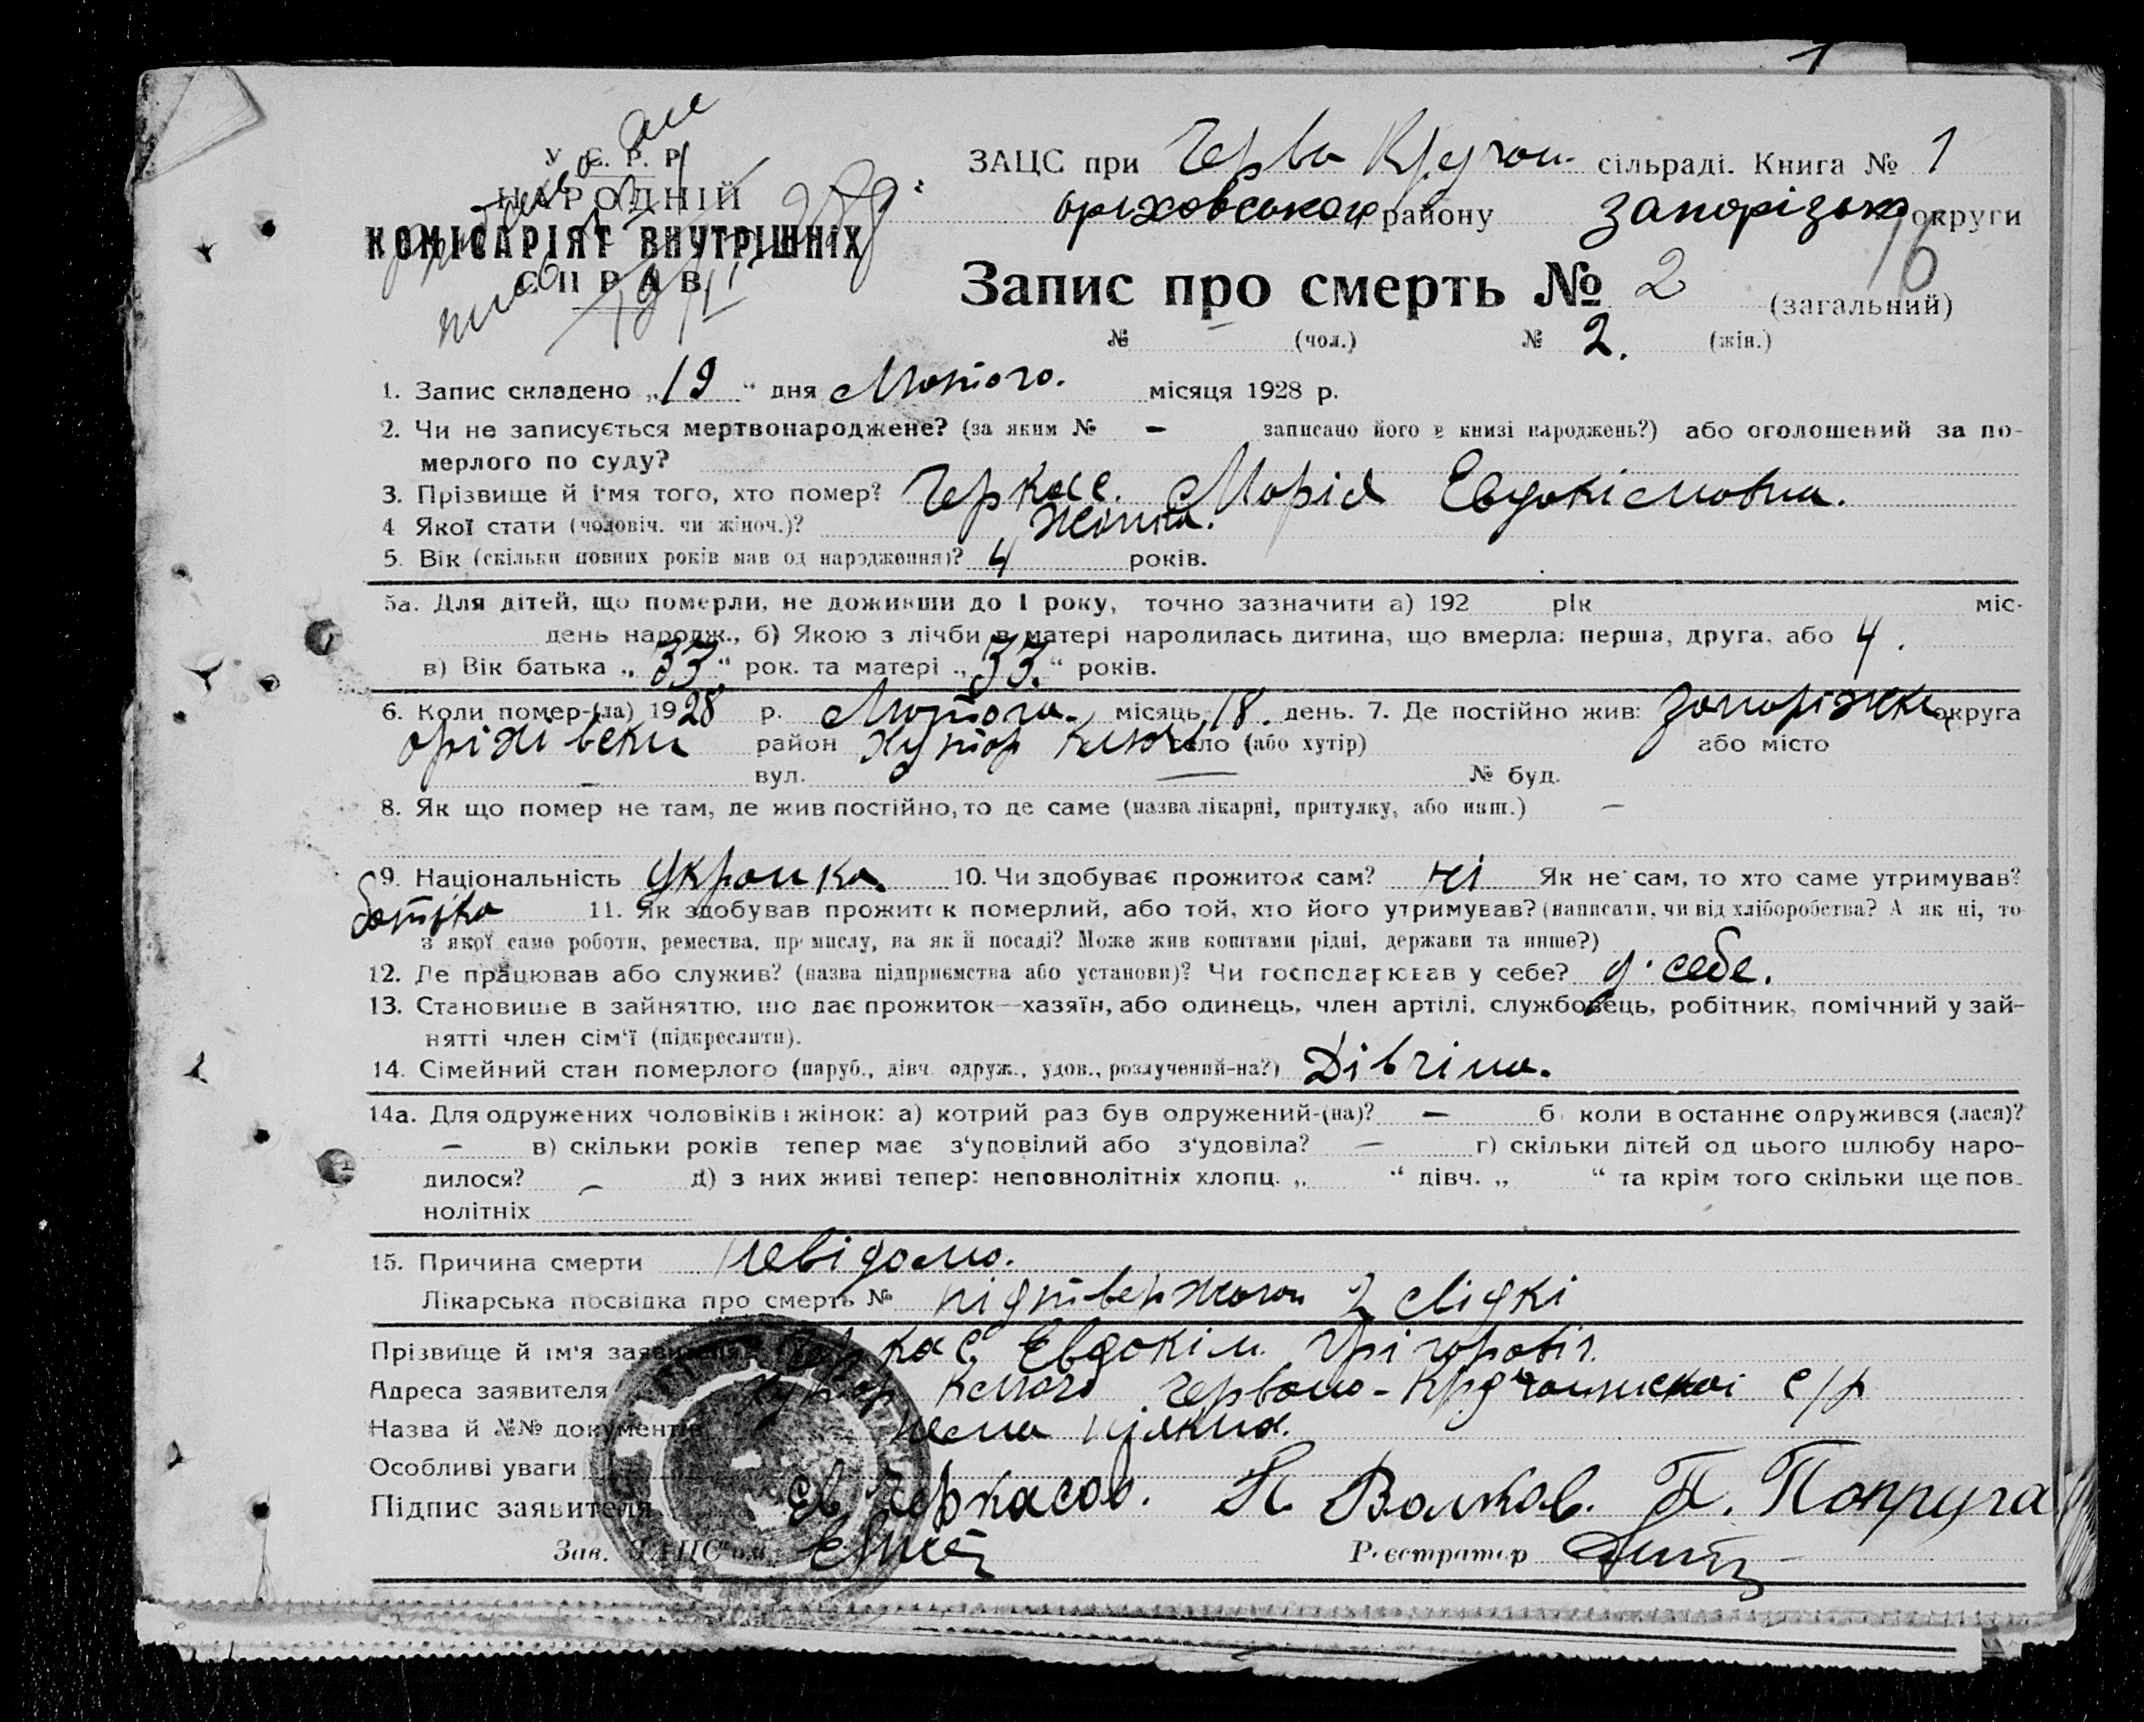 1
У. С. Р. Р.
НАРОДНІЙ
КОМІСАРІЯТ ВНУТРІШНІХ
СПРАВ
ЗАЦС при Черво Кручан- сільраді. Книга № 1
району округи
16
Запис про смерть № 2 (загальний)
№ – (чол.) № 2. (жін.)
1. Запис складено „19“ дня Лютого. місяця 1928 р.
2. Чи не записується мертвонароджене? (за яким № – записано його в книзі народжень?) або оголошений за по-
мерлого по суду?
3. Прізвище й ім'я того, хто помер? Черкас. Марія Евдокімовна.
4 Якої статі (чоловіч. чи жіноч.)? Жінка.
5. Вік (скільки повних років мав од народження)? 4 років.
5а. Для дітей, що померли, не доживши до 1 року, точно зазначити а) 192 рік міс.
день народж., б) Якою з лічби в матері народилась дитина, що вмерла: перша, друга, або 4.
в) Вік батька „33“ рок. та матері „33.“ років.
6. Коли помер-(ла) 1928 р. Лютого. місяць 18. день. 7. Де постійно жив: округа
район Хутор село (або хутір) або місто
– вул. — № буд.
8. Як що помер не там, де жив постійно, то де саме (назва лікарні, притулку, або инш.) –
9. Національність Украінка. 10. Чи здобуває прожиток сам? ні Як не сам, то хто саме утримував?
батько 11. Як здобував прожиток померлий, або той, хто його утримував? (написати, чи від хліборобства? А як ні, то
з якої само роботи, ремества, промислу, на якій посаді? Може жив коштами рідні, держави та инше?)
12. Де працював або служив? (назва підприємства або установи)? Чи господарював у себе? у себе.
13. Становище в зайняттю, що дає прожиток—хазяїн, або одинець, член артілі, службовець, робітник, помічний у зай-
нятті член сім'ї (підкреслити).
14. Сімейний стан померлого (паруб., дівч. одруж., удов., розлучений-на?) Дівчіна.
14а. Для одружених чоловіків і жінок: а) котрий раз був одружений-(на)? – б) коли в останнє одружився (лася)?
– в) скільки років тепер має з'удовілий або з'удовіла? – г) скільки дітей од цього шлюбу наро-
дилося? – д) з них живі тепер: неповнолітніх хлопц. „ “ дівч. „ “ та крім того скільки ще пов-
нолітніх
15. Причина смерти невідомо.
Лікарська посвідка про смерть № 2 свідкі
Прізвище й ім'я заявителя Черкас Евдокім Грігоровіч.
Адреса заявителя Хутор с/р
Назва й №№ документів нема ніякіх.
Особливі уваги
Підпис заявителя Ев Черкасов. Н. Волков. П. Попруга
Зав. ЗАЦС'ом Реєстратор